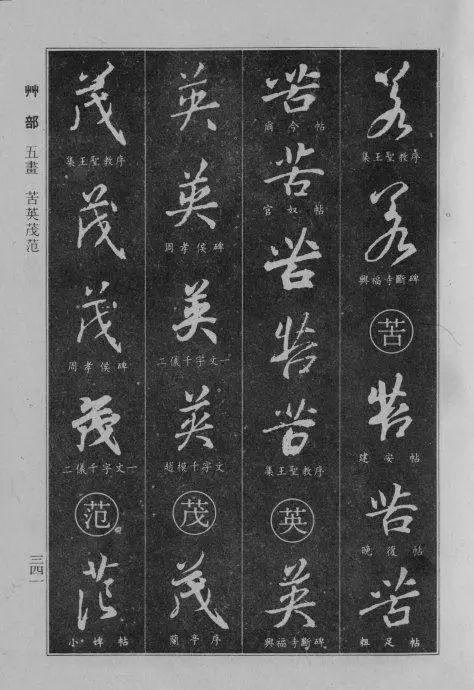 若
集王聖教序
若
興福寺斷碑
苦
苦
建安帖
苦
晚復帖
苦
粗足帖
苦
今帖
苦
官奴帖
苦
苦
苦
集王聖教序
英
英
興福寺斷碑
英
英
周孝侯碑
英
二儀千字文一
英
趙模千字文
茂
茂
蘭亭序
茂
集王聖教序
茂
茂
周孝侯碑
茂
二儀千字文一
范
范
小婢帖
艸部 五畫 苦英茂范
三四一